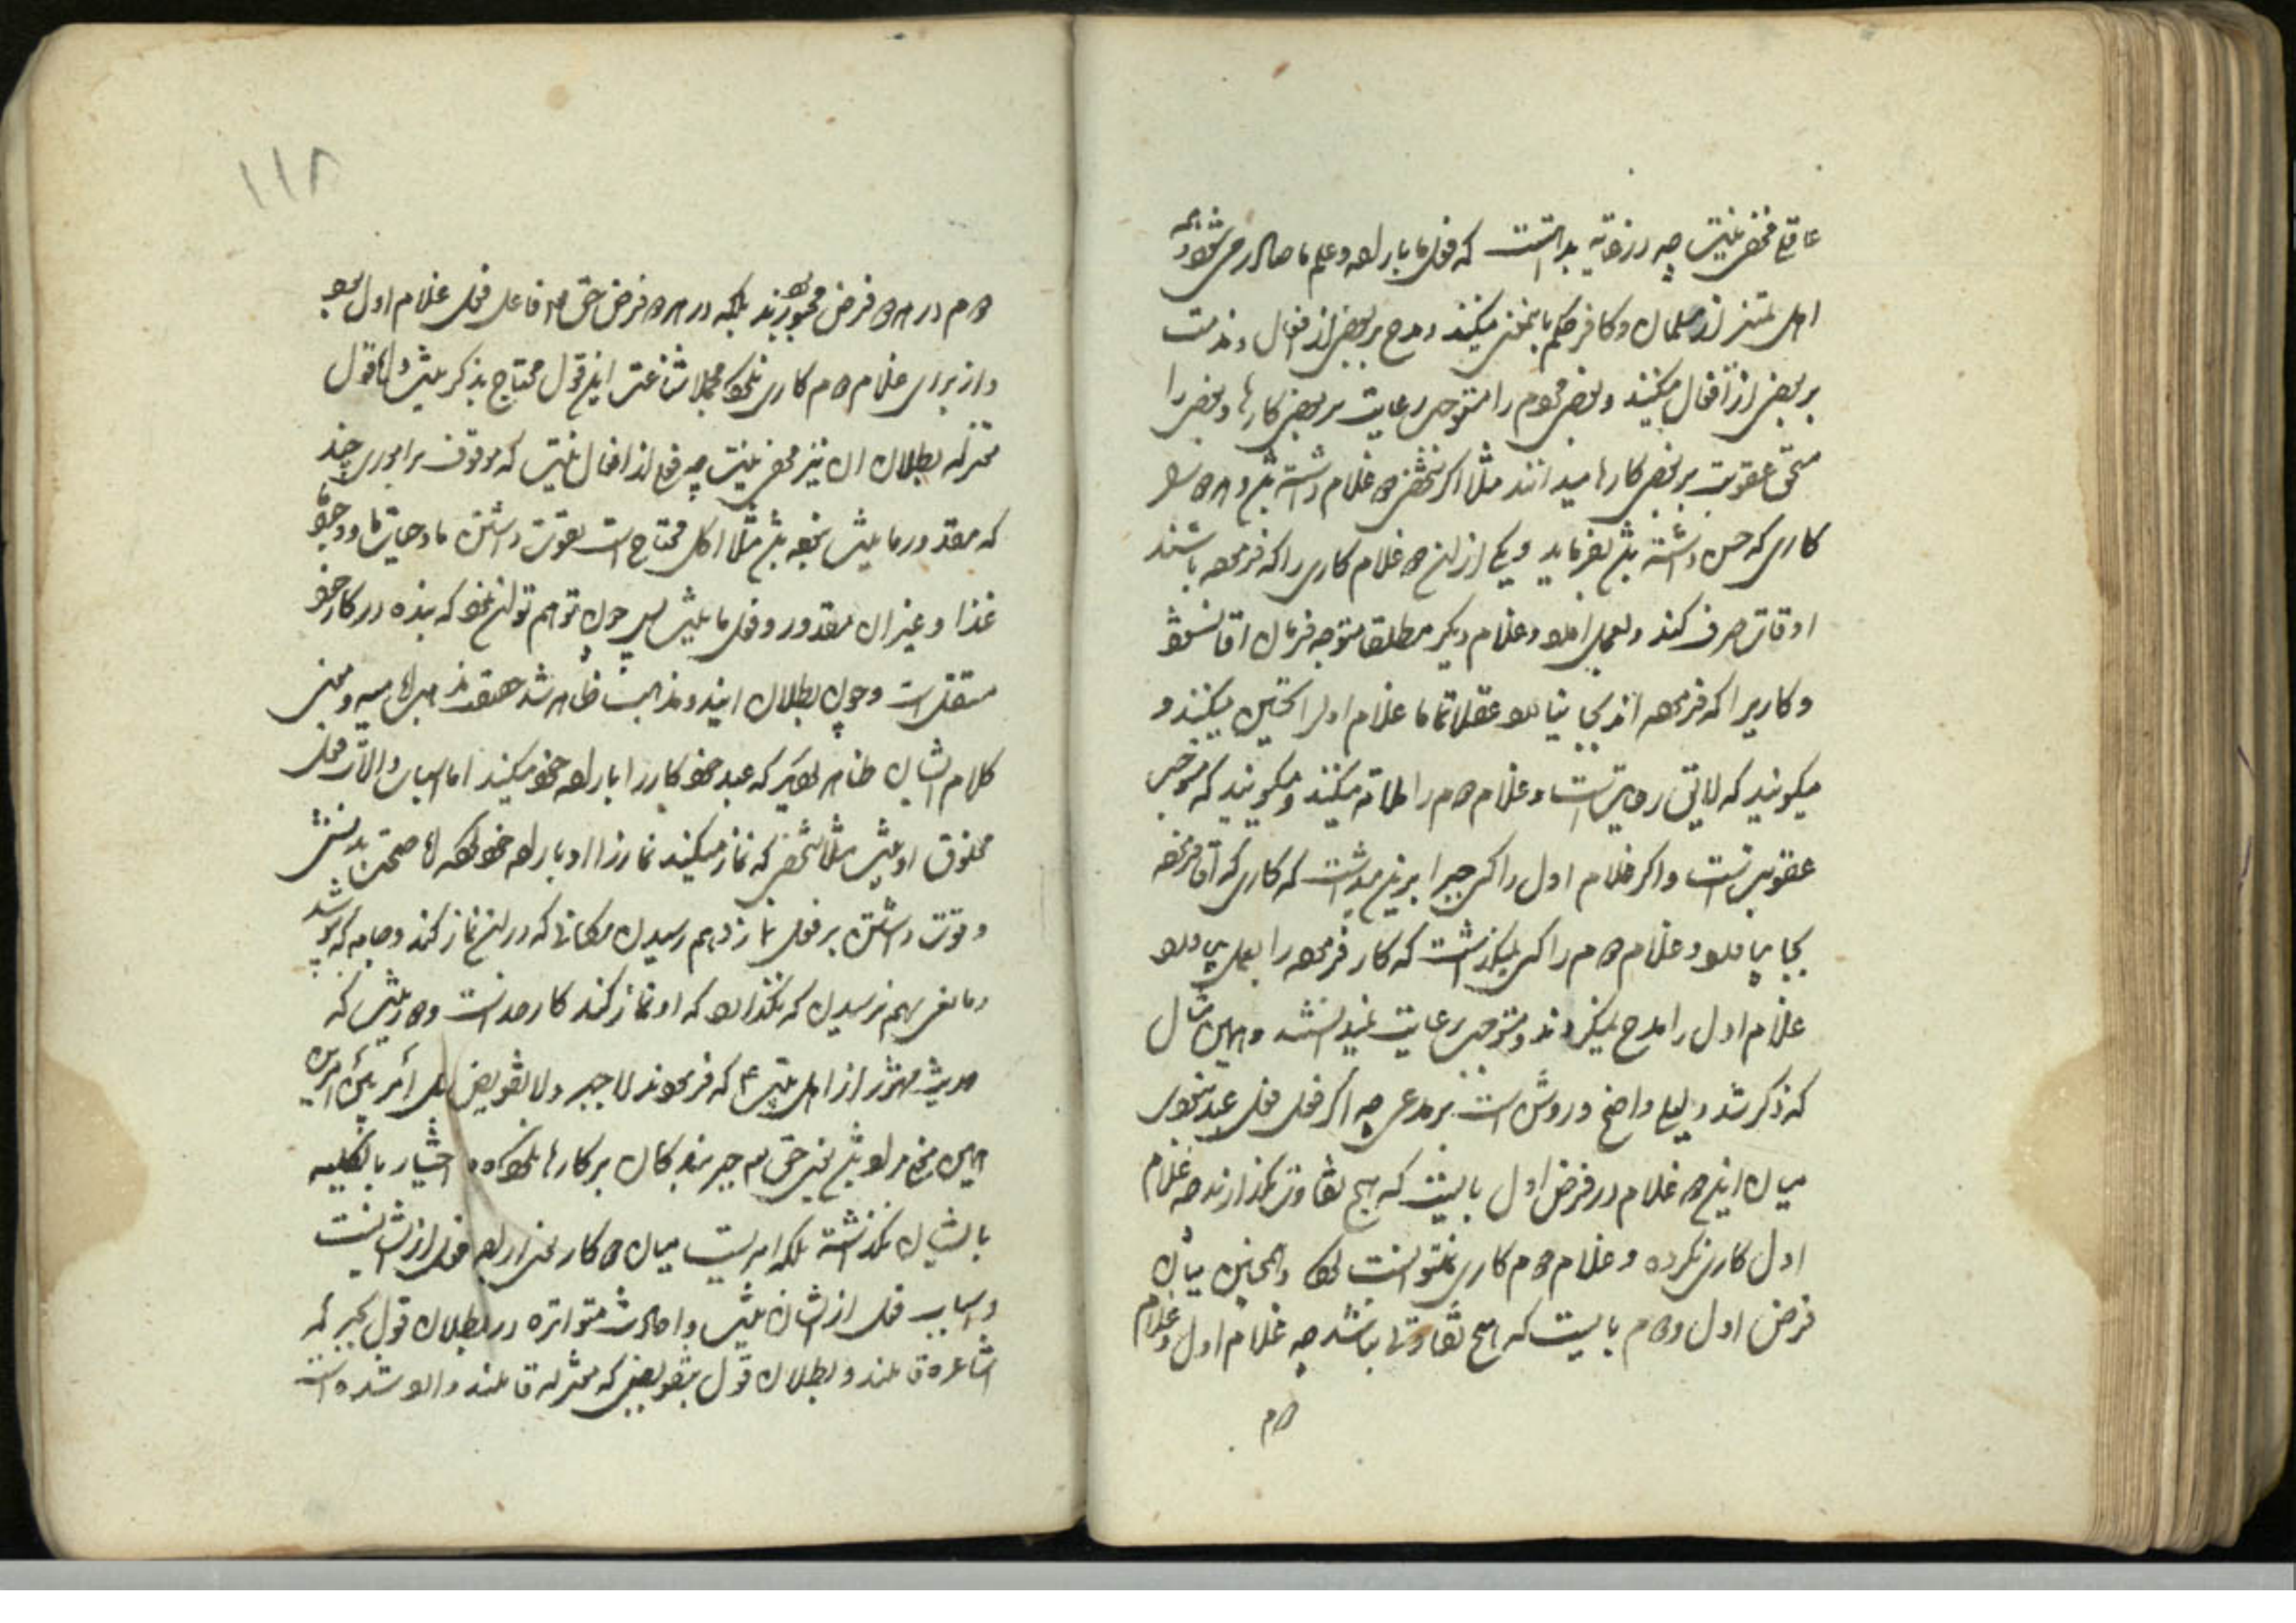 عاقلی مخفی نیست چه در نهایه بداهتست که فعل ما باراده و علم ما صادر می شود و همه
اهل تمیز از مسلمان و کافر حکم باینمعنی میکنند و مدح بر بعضی از افعال و مذمت
بر بعضی از افعال میکنند و بعضی مردم را مستوجب رعایت بر بعضی کارها و بعضی را
مستحق عقوبت بر بعضی کارها میدانند مثلا اگر شخصی دو غلام داشته باشد و هر دو را
کاری که حسن داشته باشد بفرماید و یکی از این دو غلام کاری را که فرموده باشند
اوقاتی صرف کند و بعمل آورد و غلام دیگر مطلقا متوجه فرمان آقا نشود
و کاریرا که فرموده اند بجا نیاورد عقلا تماما غلام اول را تحسین میکنند و
میگویند که لایق رعایتست و غلام دوم را ملامة میکنند و میگویند که مستوجب
عقوبتست و اگر غلام اول را کسی جبرا برین میداشت که کاری که آقا فرموده
بجا بیاورد و غلام دوم را کسی نمیگذاشت که کار فرموده را بعمل بیاورد
غلام اول را مدح نمیکردند و مستوجب رعایت نمیدانستند و همین مثال
که ذکر شد دلیلی واضح و روشن است بر مدعی چه اگر فعل فعل عبد نبودی
میان این دو غلام در فرض اول بایست که هیچ تفاوتی نگذارند چه غلام
اول کاری نکرده و غلام دوم کاری نتوانست کرد و همچنین میان
فرض اول و دوم بایست که هیچ تفاوتی نباشد چه غلام اول و غلام
دوم
۱۱۸
دوم در هر دو فرض مجبور بودند بلکه در هر دو فرض حق تعالی فاعل فعل غلام اول بود
و از برای غلام دوم کاری نکرد مجملا شناعت این قول محتاج بذکر نیست و اما قول
معتزله بطلان آن نیز مخفی نیست چه فعلی از افعال نیست که موقوف بر اموری چند
که مقدور ما نیست نبوده باشد مثلا اکل محتاج است بقوت داشتن ما و حیات ما و وجود
غذا و غیر آن مقدور و فعل ما نیست پس چون توهم توان نمود که بنده در کار خود
مستقل است و چون بطلان این دو مذهب ظاهر شد حقیقت مذهب امامیه و معنی
کلام ایشان ظاهر گردید که عبد خود کار را باراده خود میکند اما اسباب و آلات فعل
مخلوق او نیست مثلا شخصی که نماز میکند نماز را او باراده خود کرده اما صحت بدنش
و قوت داشتن بر فعل نماز و بهم رسیدن مکانی که در آن نماز کند و جامه که بپوشد
و مانعی بهم نرسیدن که نگذارد که او نماز کند کار خداست و در حدیث که
حدیث مشهور از اهل بیت ع که فرمودند لا جبر و لا تفویض بل امر بین امرین
همین معنی مراد باشد یعنی حق تعالی جبر بندگان بر کارها نکرده و اختیار بالکلیه
بایشان نگذاشته بلکه امریست میان دو کار یعنی اراده فعل از ایشانست
و اسباب فعل از ایشان نیست و احادیث متواتره در بطلان قول بجبر که
اشاعره قائلند و بطلان قول بتفویض که معتزله قائلند وارد شده است